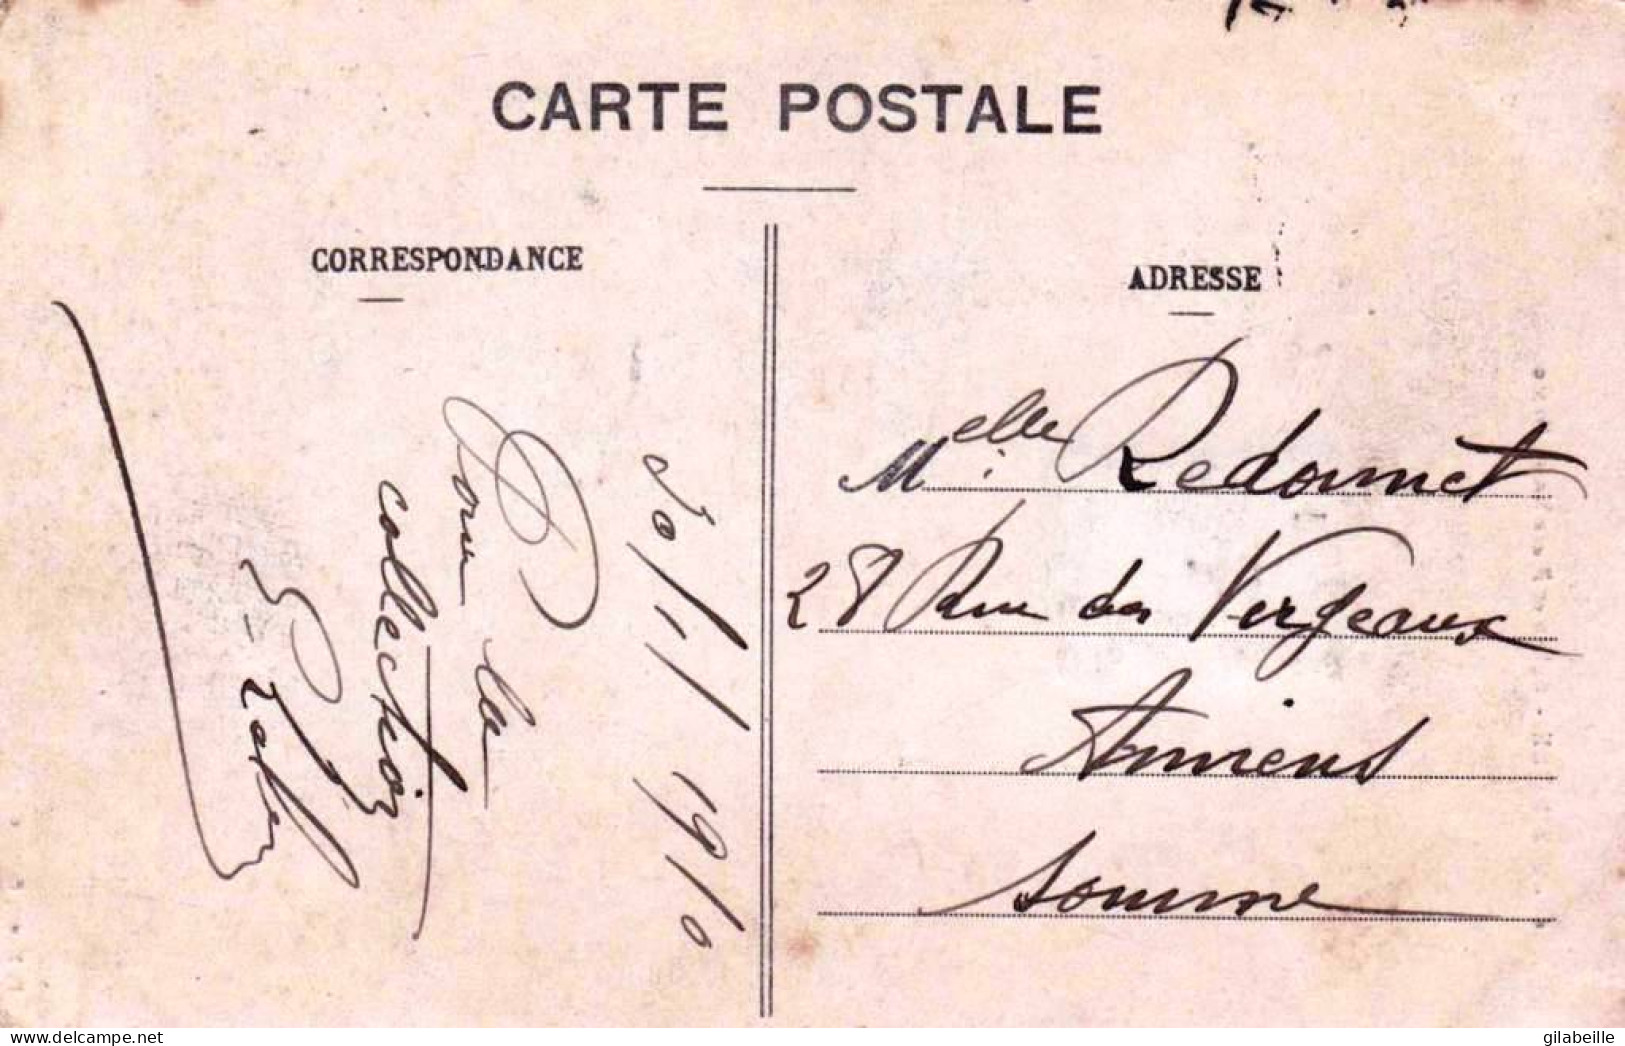 CARTE POSTALE
CORRESPONDANCE
ADRESSE
20/11 1910
Pour la
collection
Melle Redonnet
28 Rue des Vergeaux
Amiens
Somme
www.delcampe.net
gilabeille